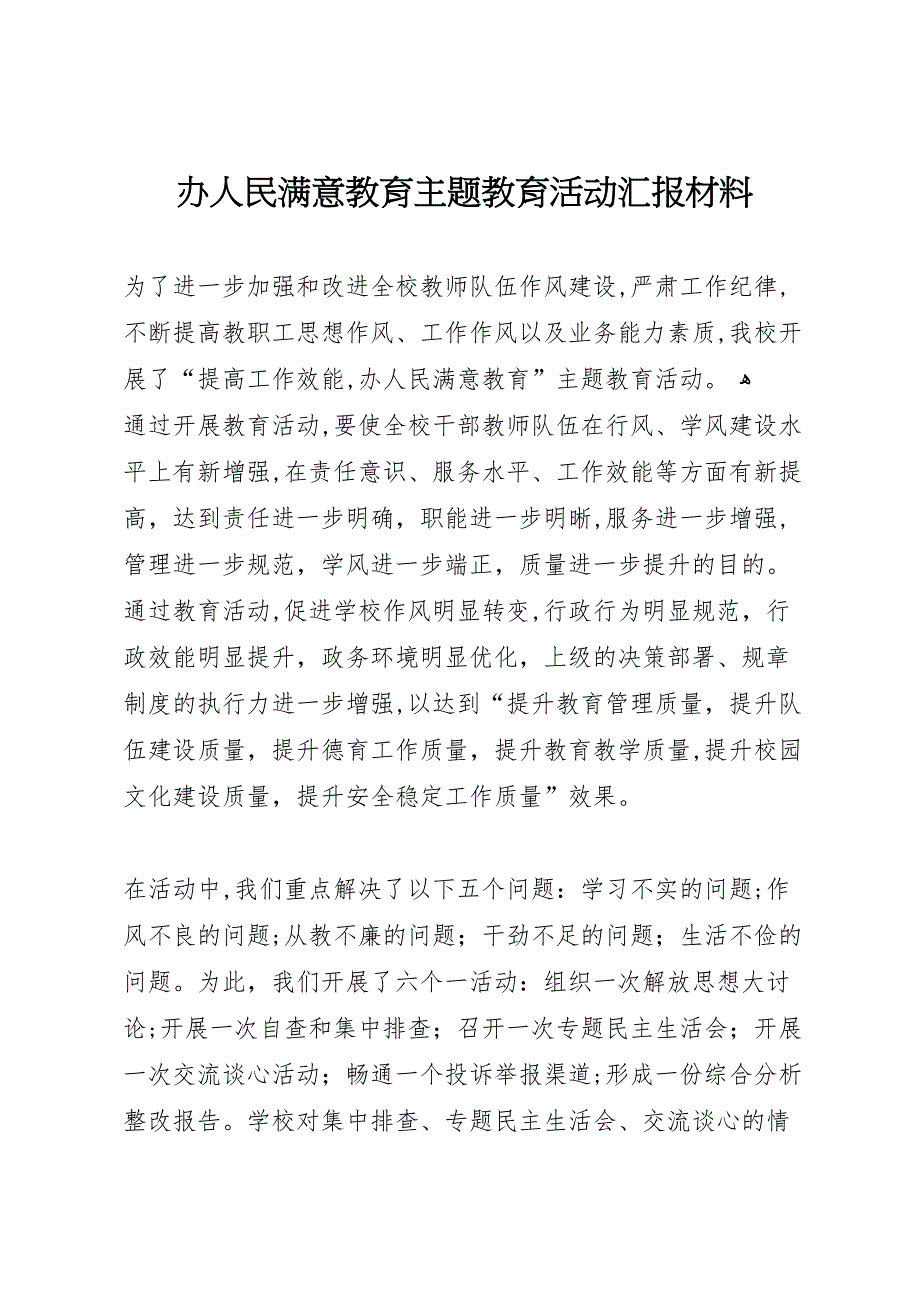 办人民满意教育主题教育活动汇报材料
为了进一步加强和改进全校教师队伍作风建设,严肃工作纪律,
不断提高教职工思想作风、工作作风以及业务能力素质,我校开
展了“提高工作效能,办人民满意教育”主题教育活动。 ﻫ
通过开展教育活动,要使全校干部教师队伍在行风、学风建设水
平上有新增强,在责任意识、服务水平、工作效能等方面有新提
高，达到责任进一步明确，职能进一步明晰,服务进一步增强,
管理进一步规范，学风进一步端正，质量进一步提升的目的。
通过教育活动,促进学校作风明显转变,行政行为明显规范，行
政效能明显提升，政务环境明显优化，上级的决策部署、规章
制度的执行力进一步增强,以达到“提升教育管理质量，提升队
伍建设质量，提升德育工作质量，提升教育教学质量,提升校园
文化建设质量，提升安全稳定工作质量”效果。
在活动中,我们重点解决了以下五个问题：学习不实的问题;作
风不良的问题;从教不廉的问题；干劲不足的问题；生活不俭的
问题。为此，我们开展了六个一活动：组织一次解放思想大讨
论;开展一次自查和集中排查；召开一次专题民主生活会；开展
一次交流谈心活动；畅通一个投诉举报渠道;形成一份综合分析
整改报告。学校对集中排查、专题民主生活会、交流谈心的情